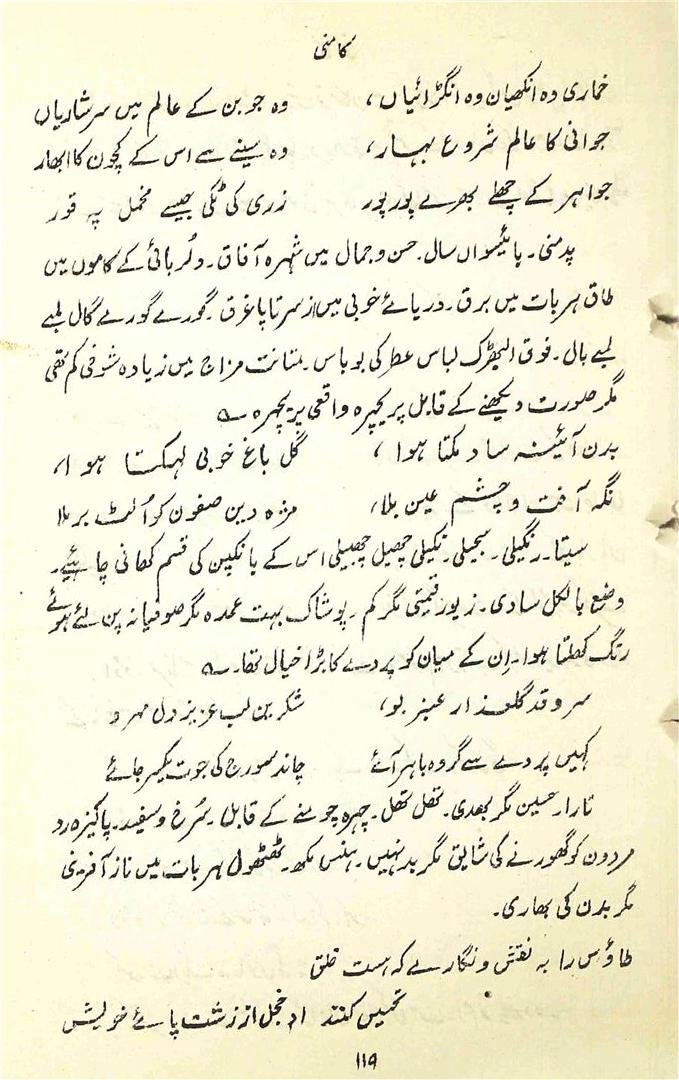 کامنی
خماری وہ انکھیان وہ انگڑائیاں، وہ جوبن کے عالم میں سرشاریاں
جوانی کا عالم شروع بہار، وہ سینے سے اس کے کچون کا ابھار
جواہر کے چھلے بھرے پور پور زری کی ٹکی جیسے مخمل پہ قور
پدمنی۔ بائیسواں سال۔ حسن و جمال میں شہرہ آفاق۔ دلربائی کے کاموں میں
طاق ہر بات میں برق۔ دریائے خوبی میں از سر تا پا غرق۔ گورے گورے گال لمبے
لمبے بال۔ فوق البھڑک لباس عطر کی بوباس۔ متانت مزاج میں زیادہ شوخی کم تھی
مگر صورت دیکھنے کے قابل پریچہرہ واقعی پریچہرہ ؎
بدن آئینہ سا دمکتا ہوا، گل باغ خوبی لہکتا ہوا،
نگہ آفت و چشم عین بلا، مژہ دین صفون کو اُلٹ برملا
سیتا۔ رنگیلی۔ سجیلی۔ نکیلی چھیل چھبیلی اس کے بانکپن کی قسم کھانی چاہئیے۔
وضع بالکل سادی۔ زیور قیمتی مگر کم۔ پوشاک بہت عمدہ مگر صوفیانہ پن لئے ہوئے
رنگ کھلتا ہوا۔ اِن کے میان کو پردے کا بڑا خیال تھا۔ ؎
سرو قد گلعذار عنبر بو، شکرین لب عزیز دل مہرو
کہیں پردے سے گروہ باہر آئے چاند سورج کی جوت یکسر جائے
تارا۔ حسین مگر بھدی۔ تھل تھل۔ چہرہ چومنے کے قابل۔ سُرخ و سفید۔ پاکیزہ رد
مردون کو گھورنے کی شایق مگر بد نہیں۔ ہنس مکھ۔ ٹھٹھول ہر بات میں ناز آفرینی
مگر بدن کی بھاری۔
طاؤس را بہ نقش و نگارے کہ ہست خلق
تحسیں کنند او خجل از زشت پائے خویش
۱۱۹